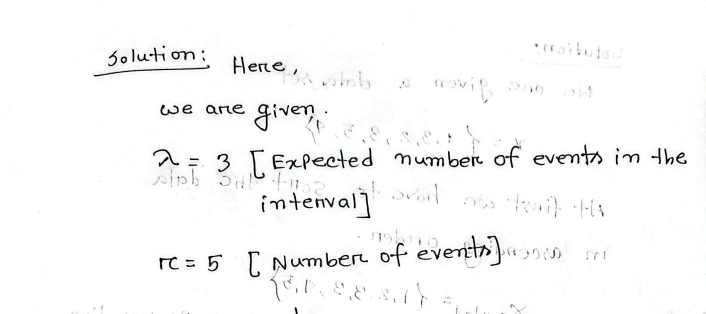 Solution: Here,
we are given.
λ = 3 [Expected number of events in the
interval]
x = 5 [Number of events]